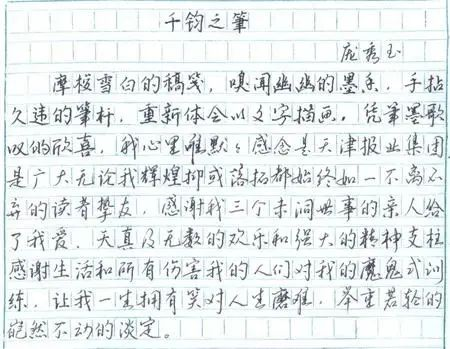 千钧之筆
庞秀玉
摩梭雪白的稿笺，嗅闻幽幽的墨香，手拈
久违的筆杆，重新体会以文字描画，凭筆墨歌
叹的欣喜，我心里唯默：感念是天津报业集团
是广大无论我辉煌抑或落拓都始终如一不离不
弃的读者挚友，感谢我三个未洞世事的亲人给
了我爱，天真及无数的欢乐和强大的精神支柱
感谢生活和所有伤害我的人们对我的魔鬼式训
练，让我一生拥有笑对人生磨难，举重若轻的
岿然不动的淡定。